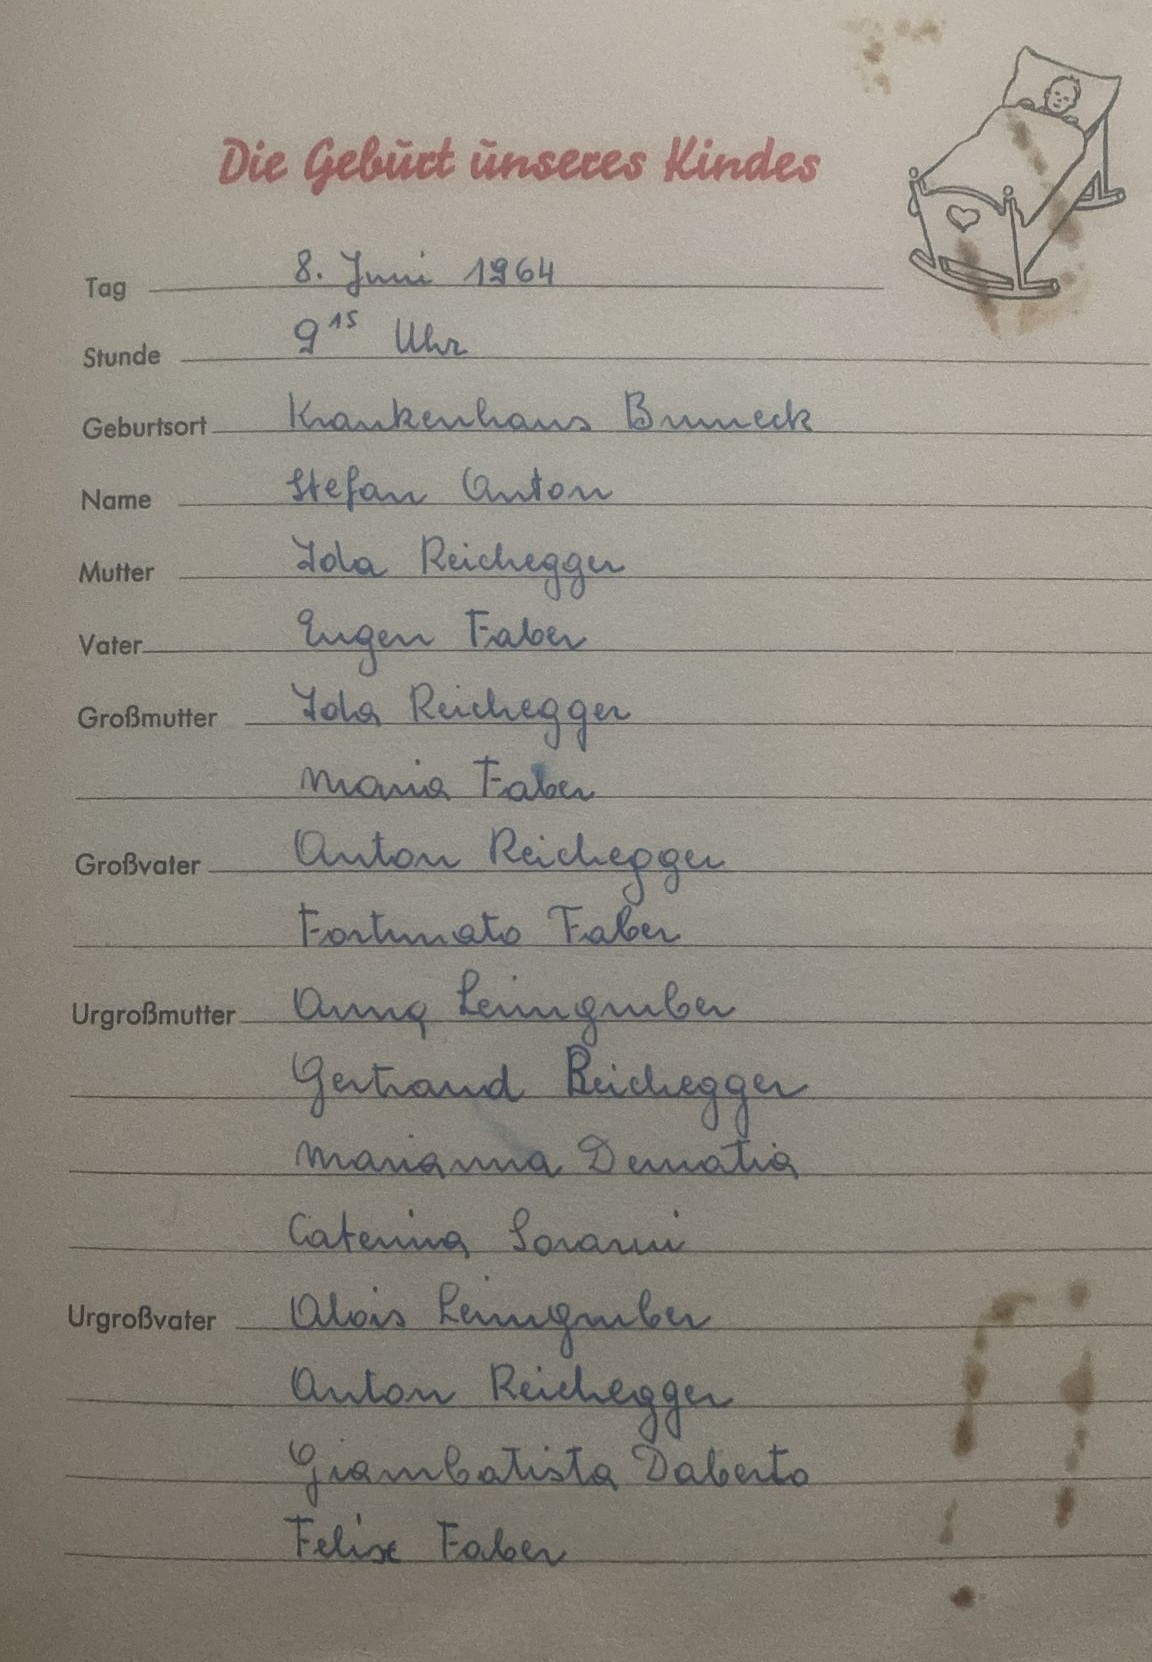 Die Geburt unseres Kindes
Tag 8. Juni 1964
Stunde 9 15 Uhr
Geburtsort Krankenhaus Bruneck
Name Stefan Anton
Mutter Ida Reichegger
Vater Eugen Faber
Großmutter Ida Reichegger
Maria Faber
Großvater Anton Reichegger
Fortunato Faber
Urgroßmutter Anna Leimgruber
Gertraud Reichegger
Marianna
Caterina
Urgroßvater Alois Leimgruber
Anton Reichegger
Giambatista Daberto
Felix Faber